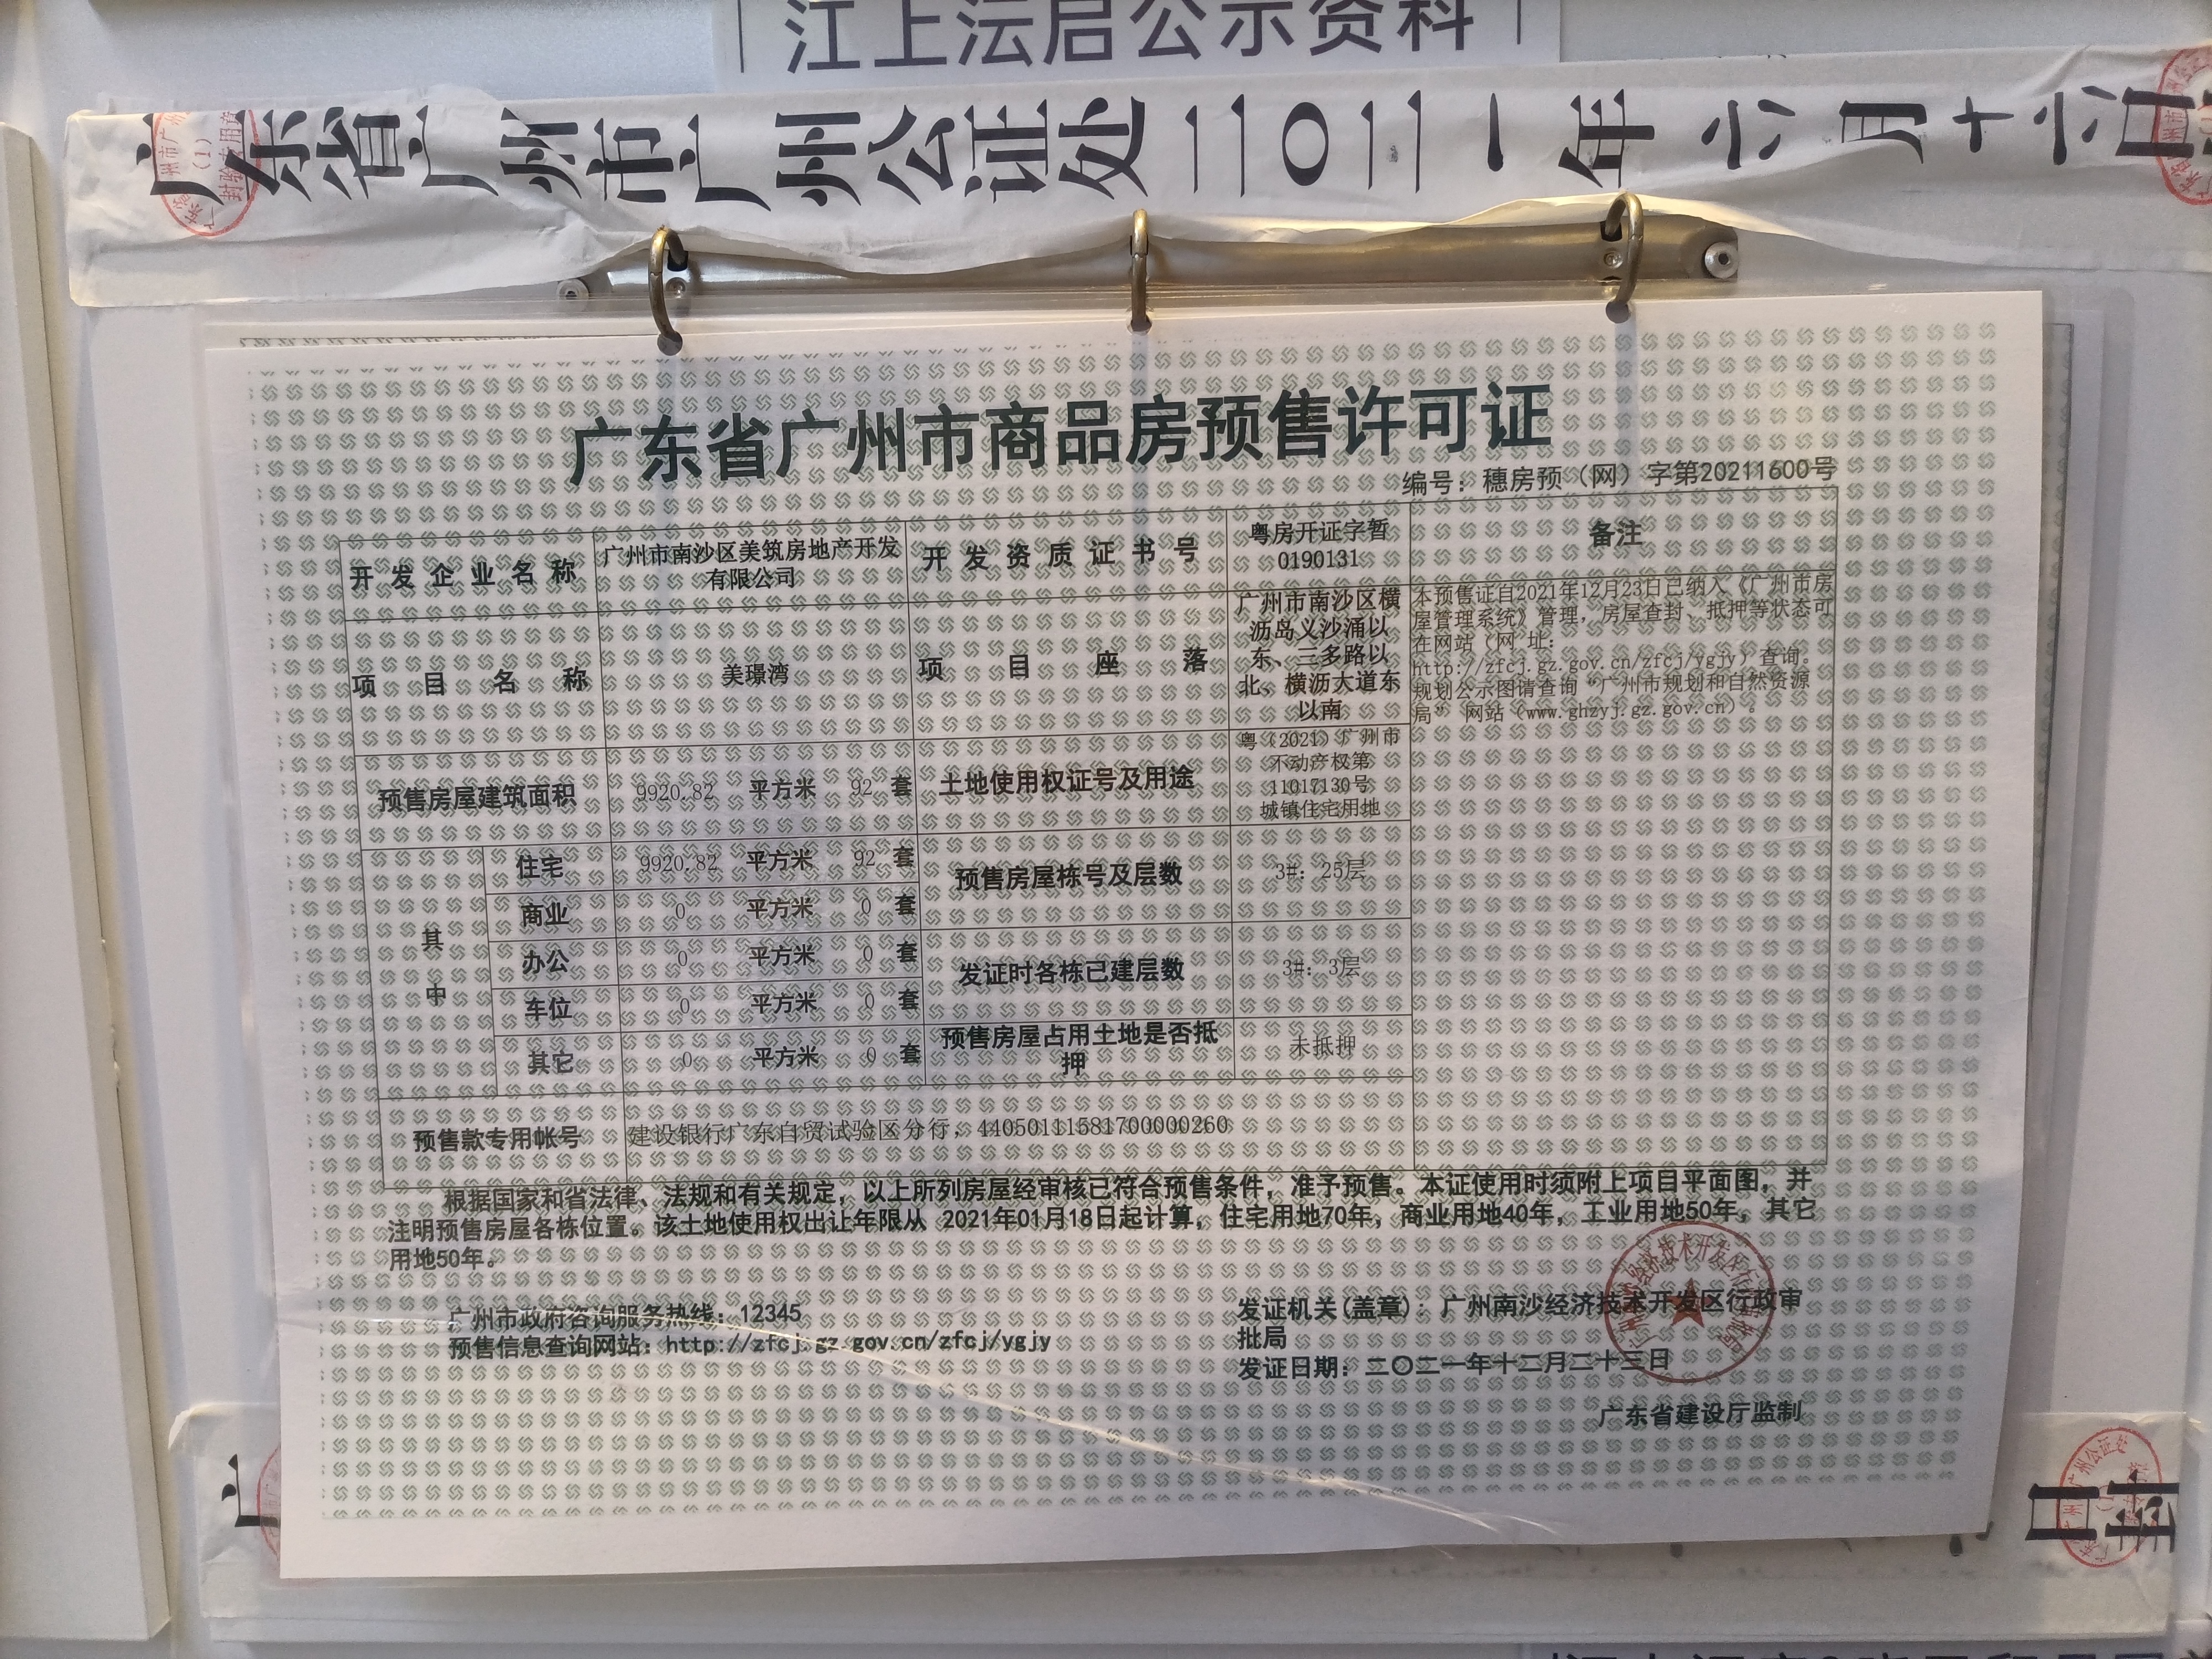 江上沄启公示资料
广东省广州市广州公证处二〇二一年六月十六日
广东省广州市商品房预售许可证
编号：穗房预（网）字第20211600号
开发企业名称
广州市南沙区美筑房地产开发
有限公司
开发资质证书号
粤房开证字暂
0190131
备注
项目名称
美璟湾
项目座落
广州市南沙区横
沥岛义沙涌以
东、三多路以
北、横沥大道东
以南
本预售证自2021年12月23日已纳入《广州市房
屋管理系统》管理，房屋查封、抵押等状态可
在网站（网 址：
http://zfcj.gz.gov.cn/zfcj/ygjy）查询。
规划公示图请查询“广州市规划和自然资源
局” 网站（www.ghzyj.gz.gov.cn）。
预售房屋建筑面积
9920.82 平方米 92 套
土地使用权证号及用途
粤（2021）广州市
不动产权第
11017130号
城镇住宅用地
其中
住宅 9920.82 平方米 92 套
商业 0 平方米 0 套
办公 0 平方米 0 套
车位 0 平方米 0 套
其它 0 平方米 0 套
预售房屋栋号及层数
3#：25层
发证时各栋已建层数
3#：3层
预售房屋占用土地是否抵
押
未抵押
预售款专用帐号
建设银行广东自贸试验区分行，44050111581700000260
根据国家和省法律、法规和有关规定，以上所列房屋经审核已符合预售条件，准予预售。本证使用时须附上项目平面图，并
注明预售房屋各栋位置。该土地使用权出让年限从 2021年01月18日起计算，住宅用地70年，商业用地40年，工业用地50年，其它
用地50年。
广州市政府咨询服务热线：12345
预售信息查询网站：http://zfcj.gz.gov.cn/zfcj/ygjy
发证机关(盖章)：广州南沙经济技术开发区行政审
批局
发证日期：二〇二一年十二月二十三日
广东省建设厅监制